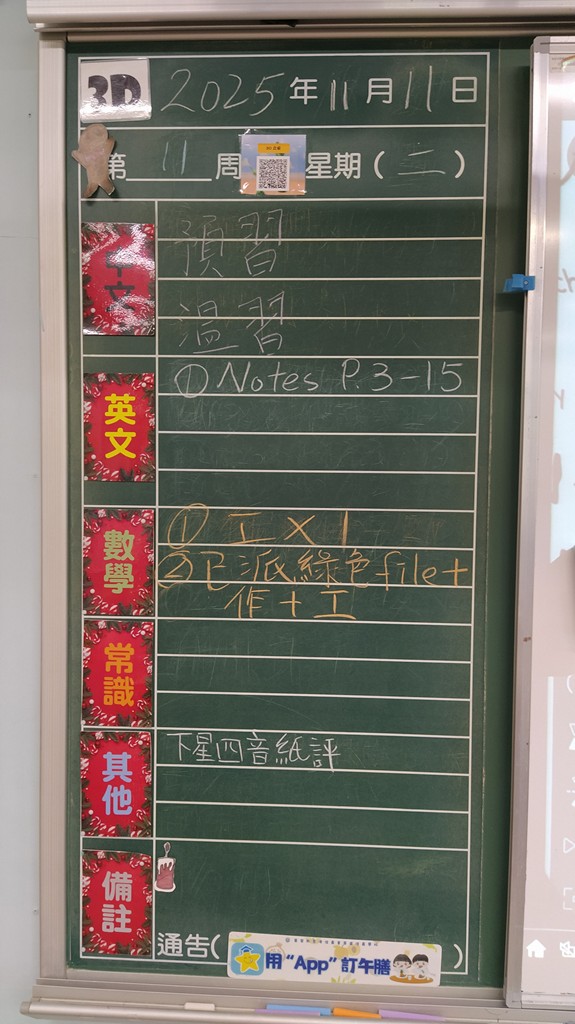 3D 2025年11月11日
第11周 星期(二)
中文
預習
溫習
英文
① Notes P.3-15
數學
① 工 X 1
② 已派綠色file+
作+工
常識
其他
下星四音紙評
備註
通告( 用“App”訂午膳 )